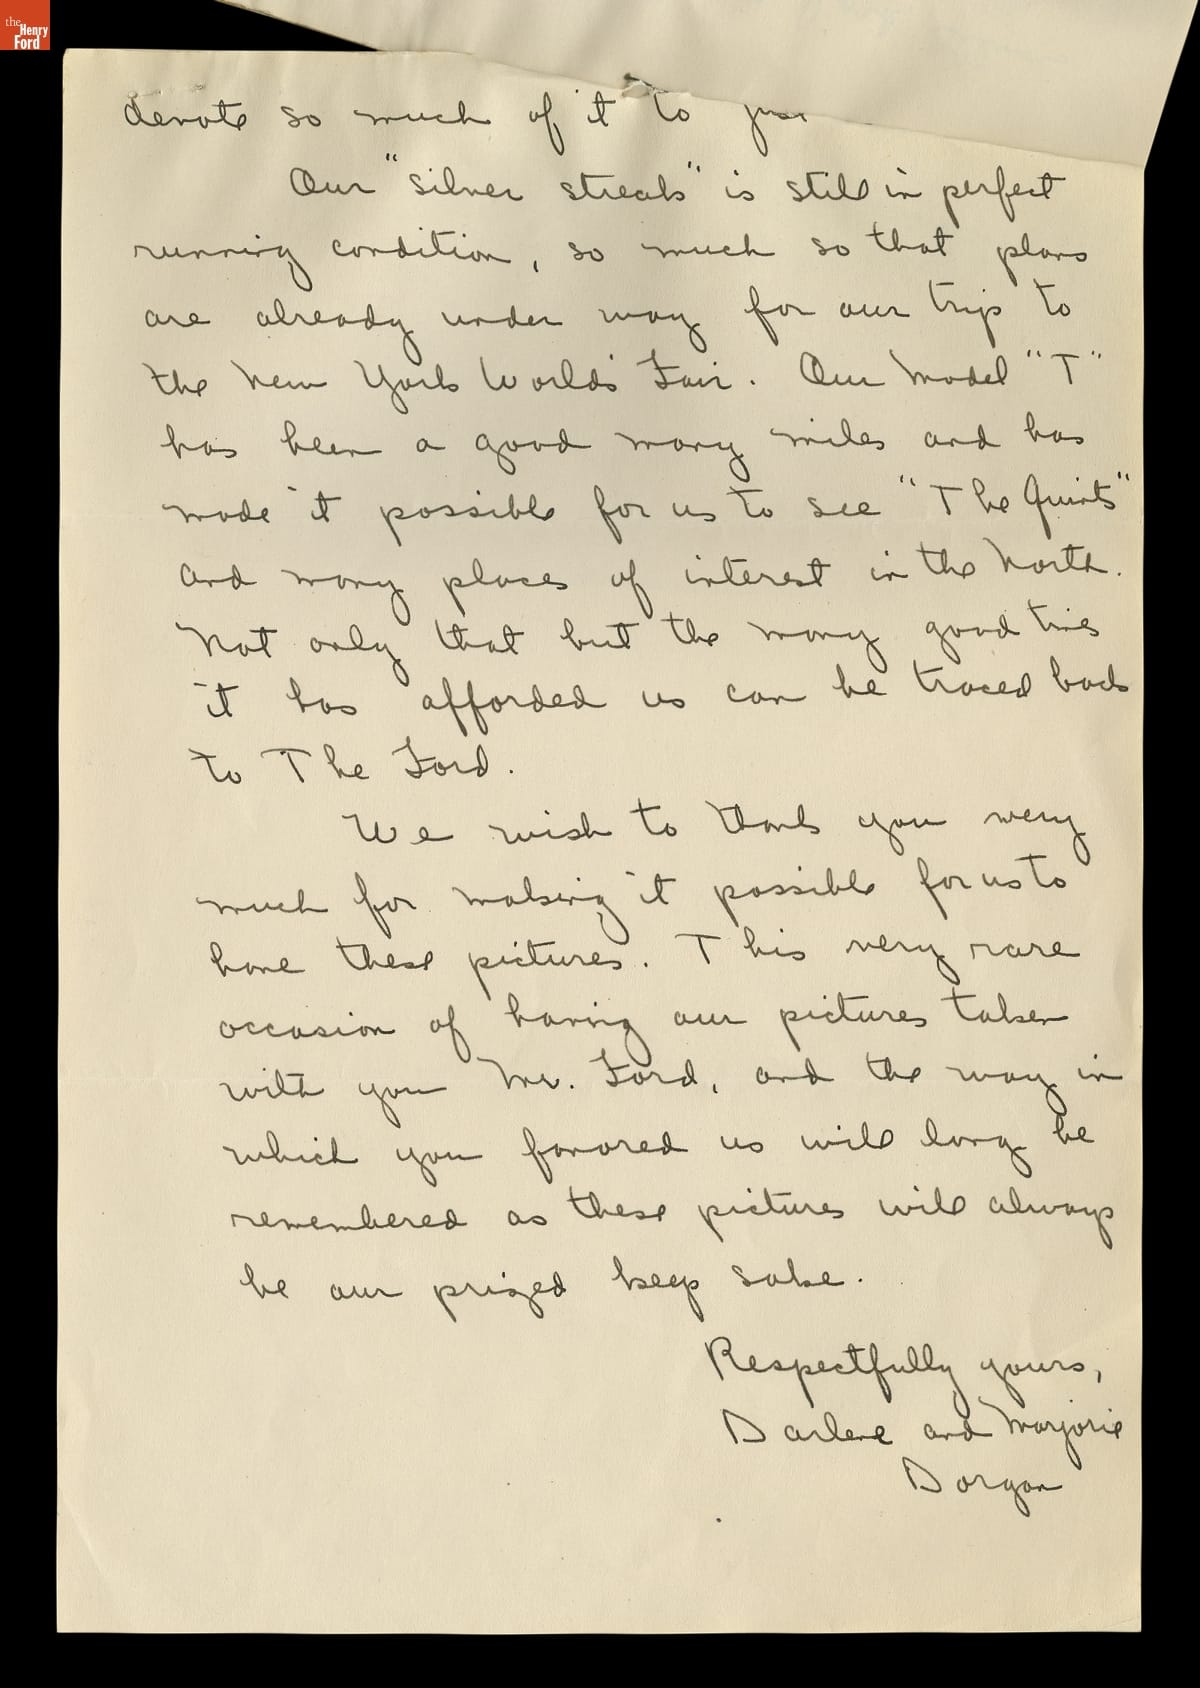 the
Henry
Ford
devote so much of it to just
Our "silver streak" is still in perfect
running condition, so much so that plans
are already under way for our trip to
the New York World's Fair. Our Model "T"
has been a good many miles and has
made it possible for us to see "The Quints"
and many places of interest in the North.
Not only that but the many good times
it has afforded us can be traced back
to The Ford.
We wish to thank you very
much for making it possible for us to
have these pictures. This very rare
occasion of having our pictures taken
with you Mr. Ford, and the way in
which you favored us will long be
remembered as these pictures will always
be our prized keep sake.
Respectfully yours,
Darlene and Marjorie
Dorgan